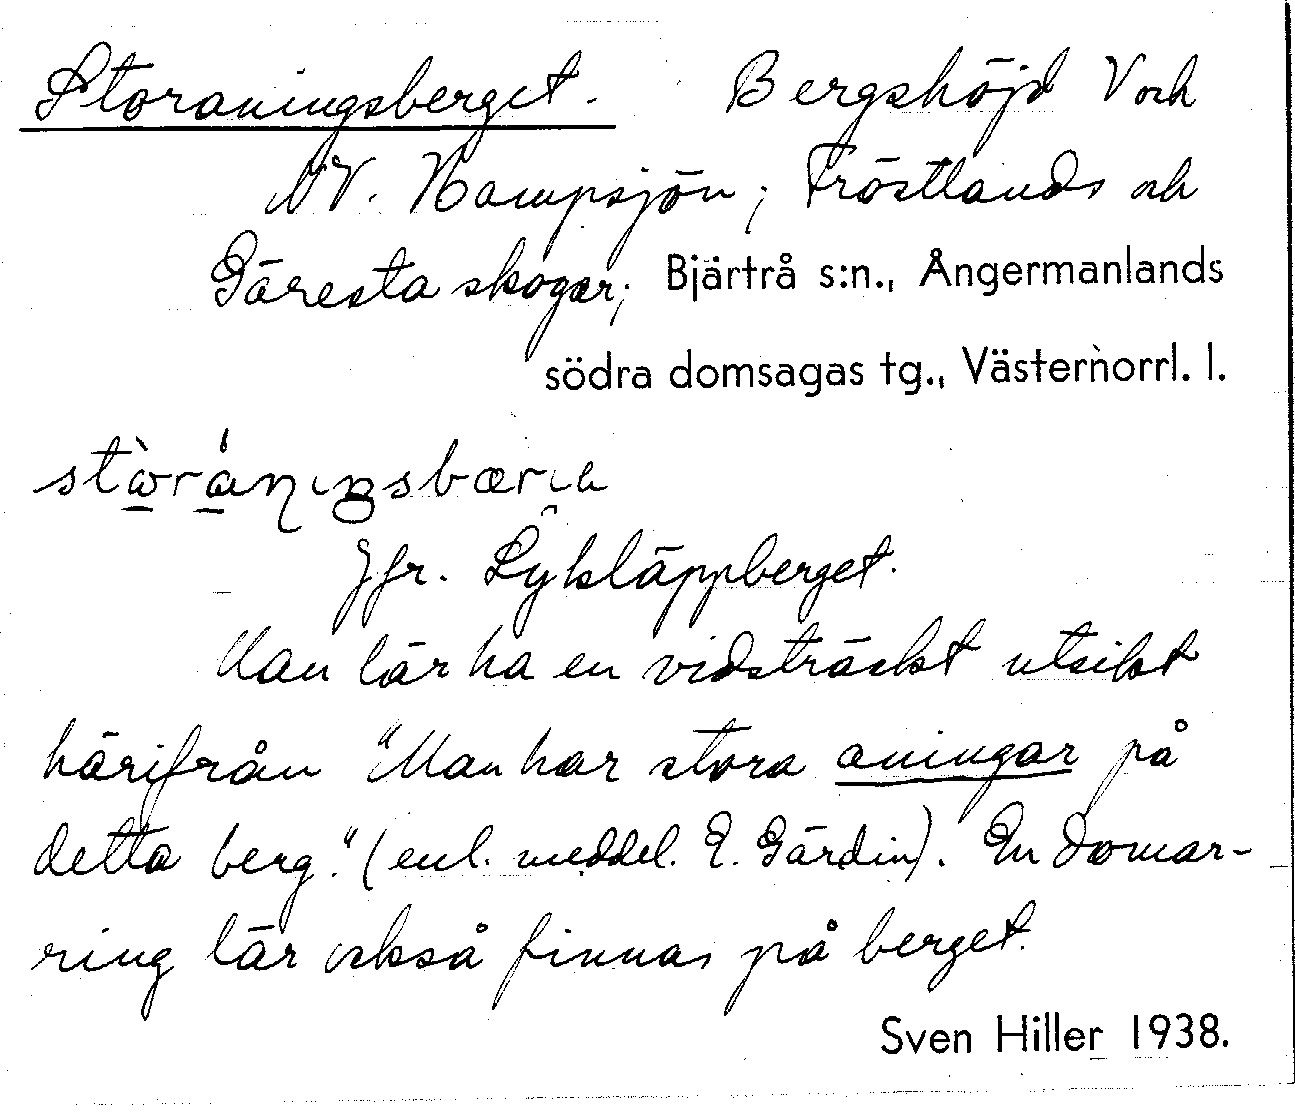 Storaningsberget. Bergshöjd V och
NV. Kampsjön; Fröstlands och
Gäresta skogar; Bjärtrå s:n., Ångermanlands
södra domsagas tg., Västernorrl. l.
Jfr. Lykläppberget.
Man lär ha en vidsträckt utsikt
härifrån "Man har stora aningar på
detta berg." (enl. meddel. E. Gärdin). En domar-
ring lär också finnas på berget.
Sven Hiller 1938.